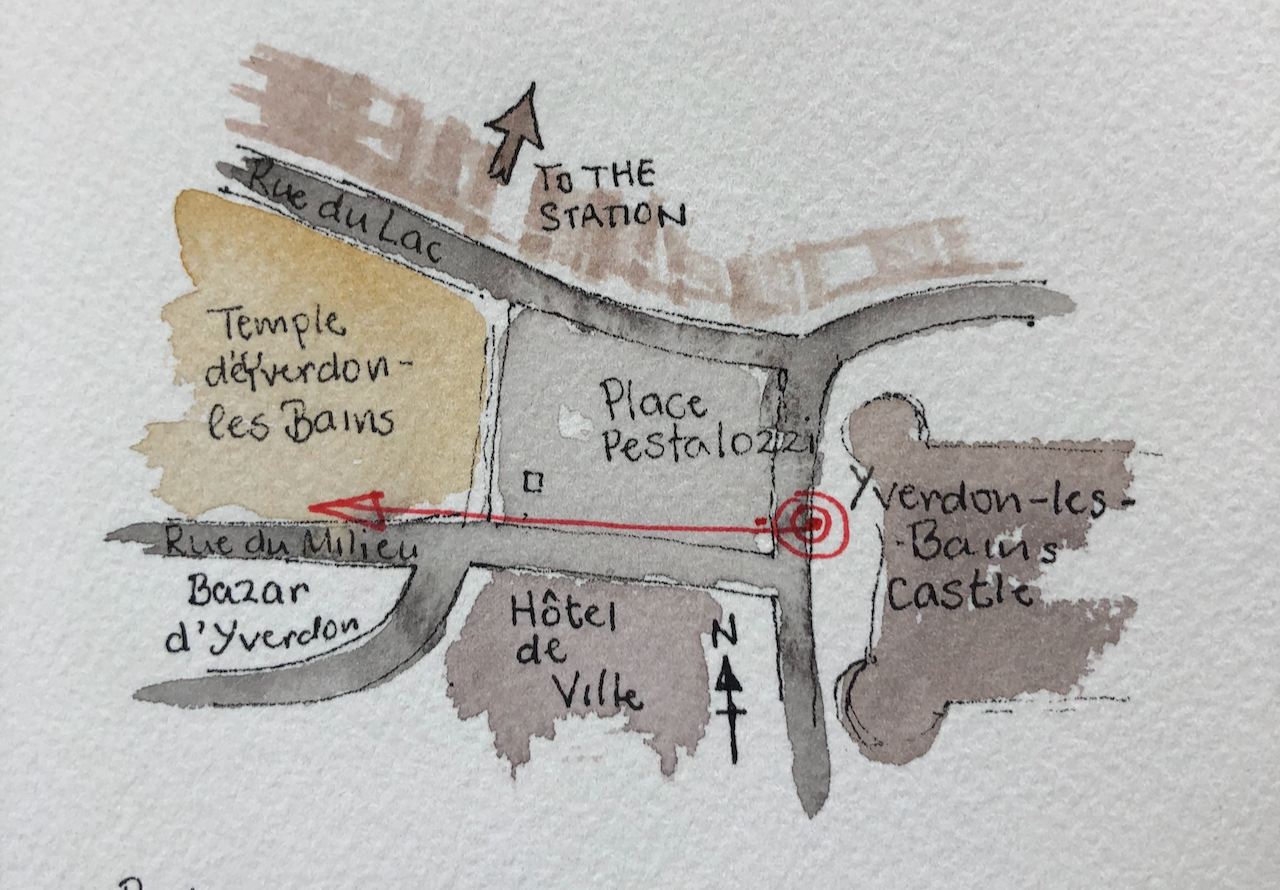 Rue du Lac
TO THE
STATION
Temple
d'Yverdon-
les Bains
Place
Pestalozzi
Yverdon-les-
-Bains
Castle
Rue du Milieu
Bazar
d'Yverdon
Hôtel
de
Ville
N